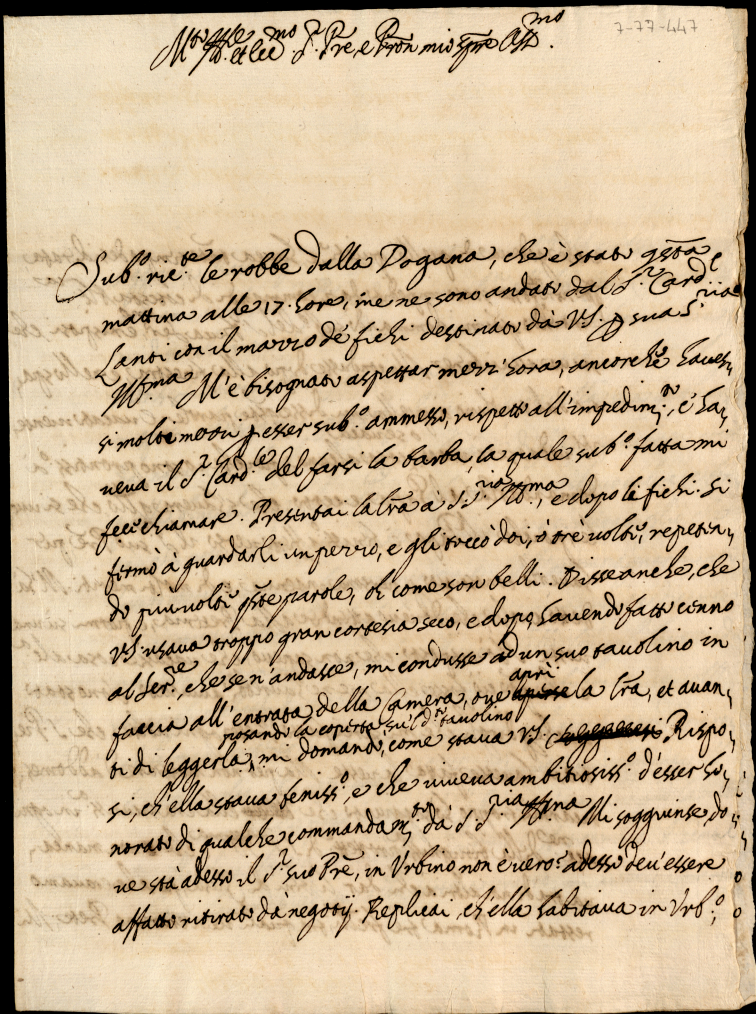 7-77-447
M.to Ill.re et Ecc.mo S.r Pre, e Pron mio sempre Oss.mo
Sub.o ric.te le robbe dalla Dogana, che è stato q.sta
mattina alle 17. hore, me ne sono andato dal S.r Card.l
Lanti con il mazzo de fichi destinato dà VS. p sua S.ria
Ill.ma M'è bisognato aspettar mezz'hora, ancorche haves,
si molti mezzi p esser sub.o ammesso, rispetto all'impedim.to, c'ha,
veva il S.r Card.le del farsi la barba, la quale sub.o fatta mi
fece chiamare. Presentai la lra à S.S.ria Ill.ma, e dopo li fichi. Si
firmò à guardarli un pezzo, e gli toccò doi, ò trè volte, repeten,
do più volte q.ste parole, oh come son belli. Disse anche, che
VS. usava troppo gran cortesia seco, e dopo havendo fatto cenno
al Ser.re, che se n'andasse, mi condusse ad un suo tavolino in
faccia all'entrata della Camera, ove aprì la lra, et avan,
ti di leggerla, posando la coperta su'l d.o tavolino mi domandò, come stava VS. Rispo,
si, ch'ella stava beniss.o, e che viveva ambitiosiss.o d'esser ho,
norato di qualche commandam.to dà S.S.ria Ill.ma Mi soggiunse, do,
ve stà adesso il S.r suo Pre, in Urbino non è vero? adesso dev'essere
affatto ritirato dà negotij. Replicai, ch'ella habitava in Urb.o,